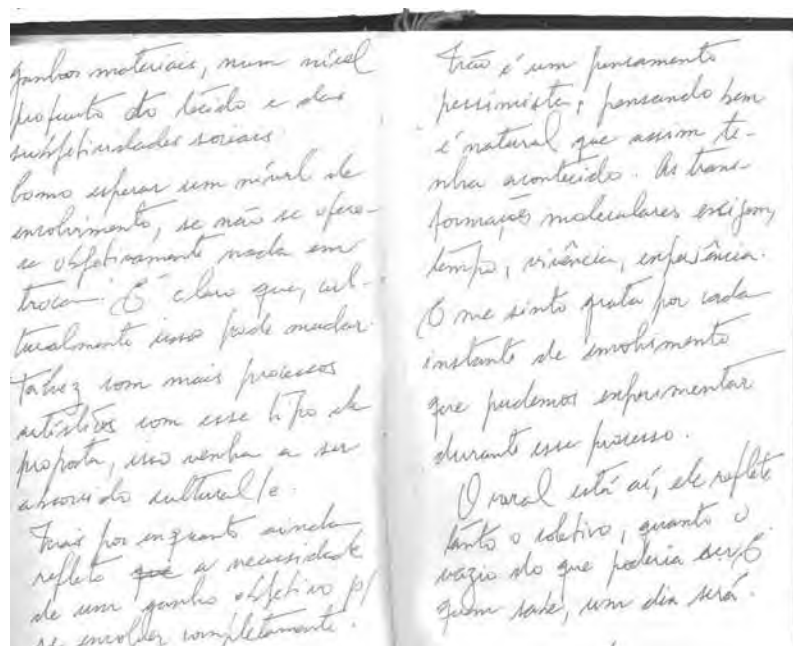 ganhos materiais, num nível
profundo do tecido e das
subjetividades sociais.
Como esperar um nível de
envolvimento, se não se ofere-
ce objetivamente nada em
troca. É claro que, cul-
turalmente isso pode mudar.
Talvez com mais processos
artísticos com esse tipo de
proposta, isso venha a ser
absorvido cultural/e.
Mas por enquanto ainda
reflete que a necessidade
de um ganho objetivo p/
se envolver completamente.
Não é um pensamento
pessimista, pensando bem
é natural que assim te-
nha acontecido. As trans-
formações moleculares exigem,
tempo, vivência, experiência.
E me sinto grata por cada
instante de envolvimento
que pudemos experimentar
durante esse processo.
O varal está aí, ele reflete
tanto o coletivo, quanto o
vazio do que poderia ser. E
quem sabe, um dia será.